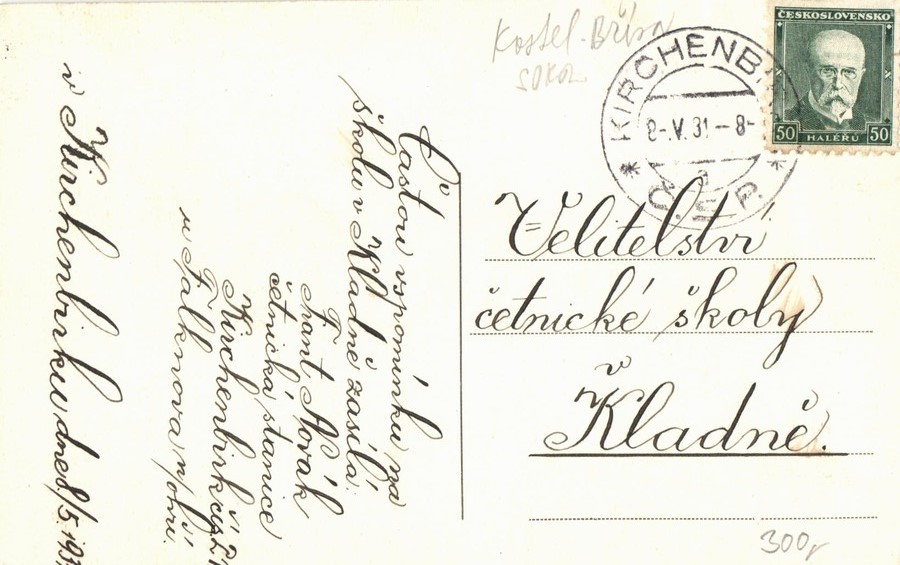 Kostel. Bříza
SOKOL
KIRCHENBI
8-.V.31-8-
a
ČESKOSLOVENSKO
50 HALÉŘŮ 50
Velitelství
četnické školy
v
Kladně.
300,-
Častou vzpomínku na
školu v Kladně zasílá
Frant Novák
četnická stanice
Kirchenbirk
u Falknova n/Ohří.
v Kirchenbirku dne 8/5.193